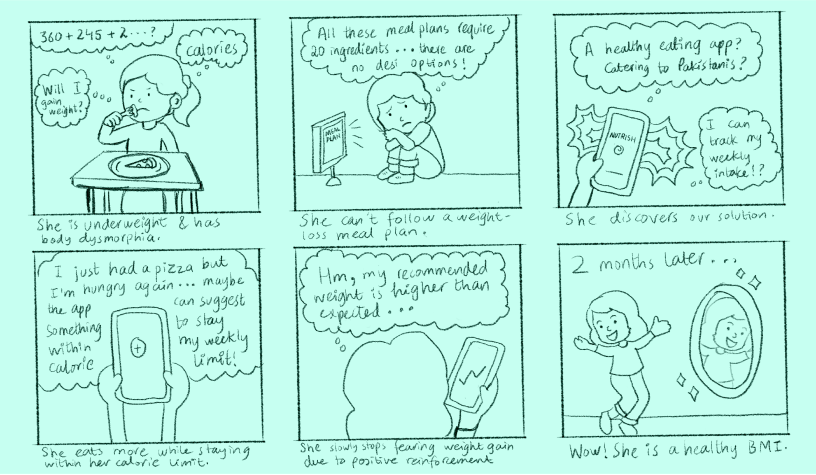 360 + 245 + 2 . . . ?
calories
Will I
gain
weight?
She is underweight & has
body dysmorphia.
All these meal plans require
20 ingredients . . . there are
no desi options!
MEAL
PLAN
She can't follow a weight-
loss meal plan.
A healthy eating app?
Catering to Pakistanis?
NUTRISH
I can
track my
weekly
intake!?
She discovers our solution.
I just had a pizza but
I'm hungry again . . . maybe
the app
something
within
calorie
can suggest
to stay
my weekly
limit!
She eats more while staying
within her calorie limit.
Hm, my recommended
weight is higher than
expected . . .
She slowly stops fearing weight gain
due to positive reinforcement
2 months later . . .
Wow! She is a healthy BMI.